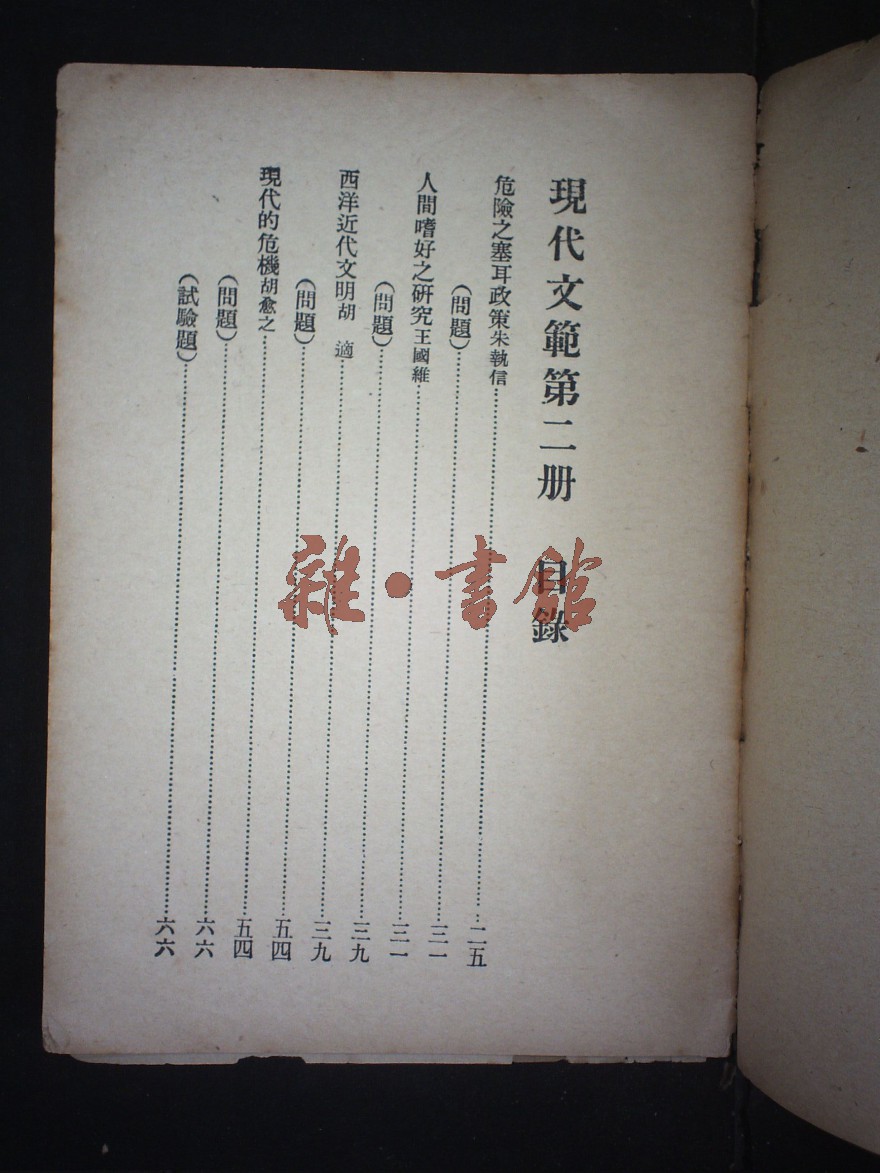 現代文範第二册 目錄
危險之塞耳政策朱執信……二五
(問題)……三一
人間嗜好之研究王國維……三一
(問題)……三九
西洋近代文明胡 適……三九
(問題)……五四
現代的危機胡愈之……五四
(問題)……六六
(試驗題)……六六
雜·書館